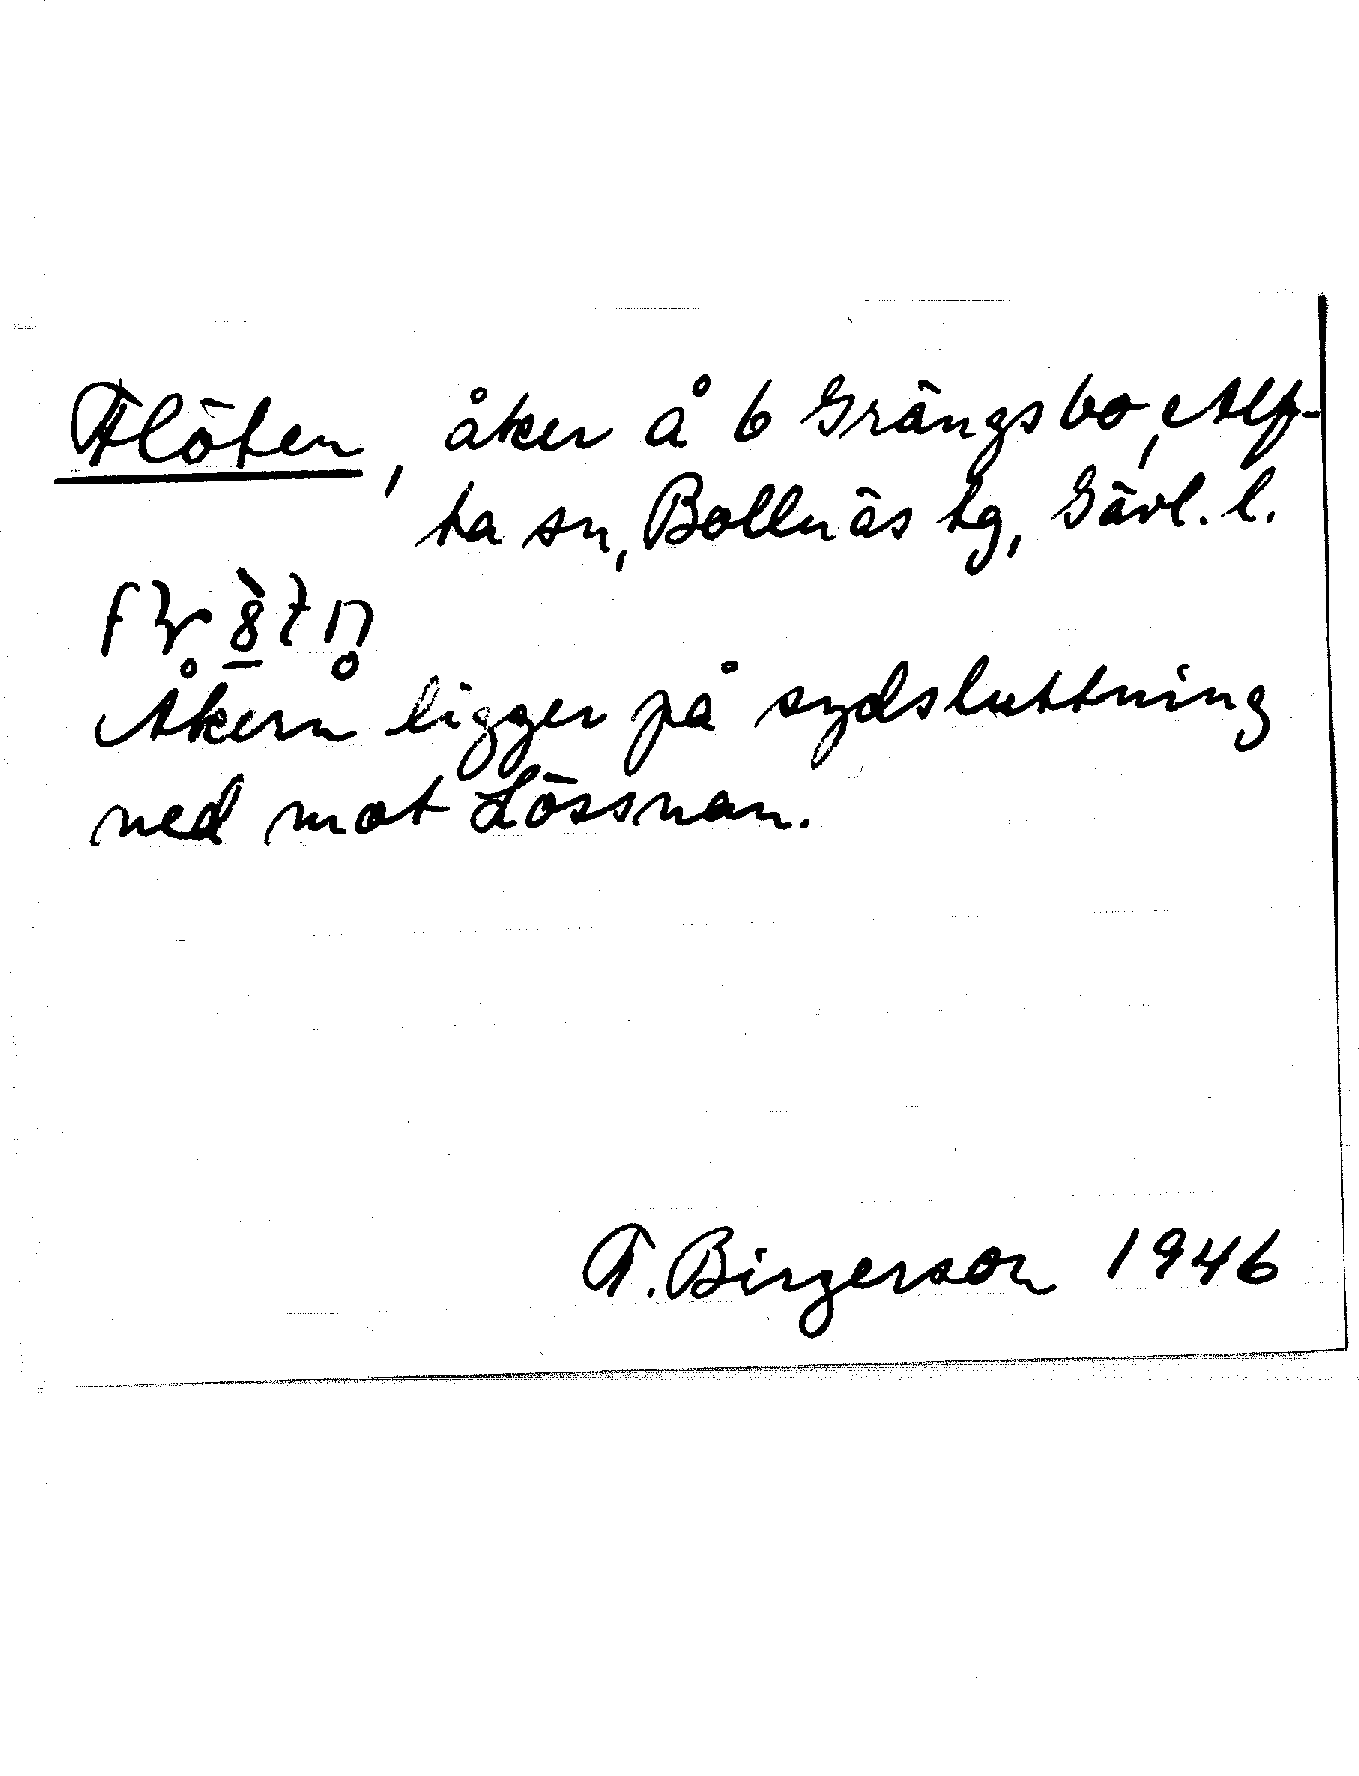 Flöten, åker å 6 Grängsbo, Alf-
ta sn, Bollnäs tg, Gävl. l.
Åkern ligger på sydsluttning
ned mot Lössnan.
F. Birgerson 1946